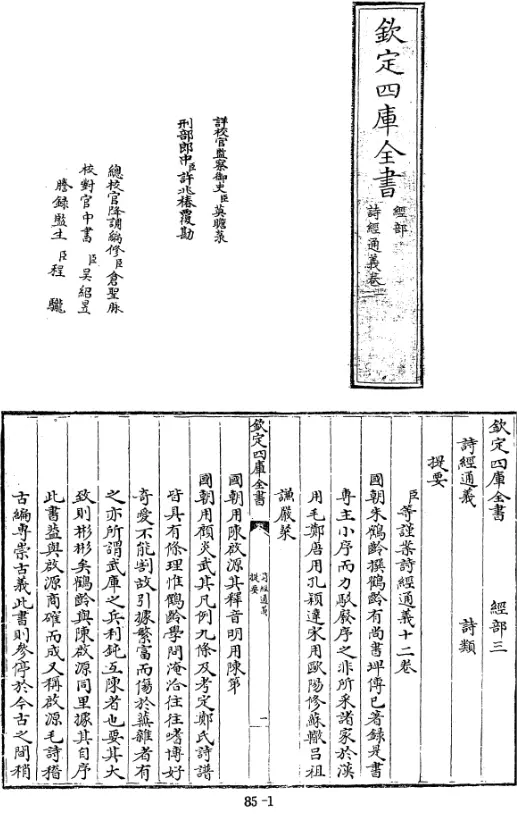 欽定四庫全書
經部
詩經通義卷
詳校官監察御史臣莫瞻菉
刑部郎中臣許兆椿覆勘
總校官降調編修臣倉聖脉
校對官中書臣吳紹昱
謄錄監生臣程
欽定四庫全書 經部三
詩經通義 詩類
提要
臣等謹案詩經通義十二卷
國朝朱鶴齡撰鶴齡有尚書埤傳已著録是書
専主小序而力駁廢序之非所采諸家於漢
用毛鄭唐用孔穎達宋用歐陽修蘇轍吕祖
謙嚴粲
欽定四庫全書
詩經通義
提要
一
國朝用陳啟源其釋音明用陳第
國朝用顧炎武其凡例九條及考定鄭氏詩譜
皆具有條理惟鶴齡學問淹洽往往嗜博好
奇愛不能割故引據繁富而傷於蕪雜者有
之亦所謂武庫之兵利鈍互陳者也要其大
致則彬彬矣鶴齡與陳啟源同里據其自序
此書葢與啟源商確而成又稱啟源毛詩稽
古編専崇古義此書則參停於今古之間稍
85-1